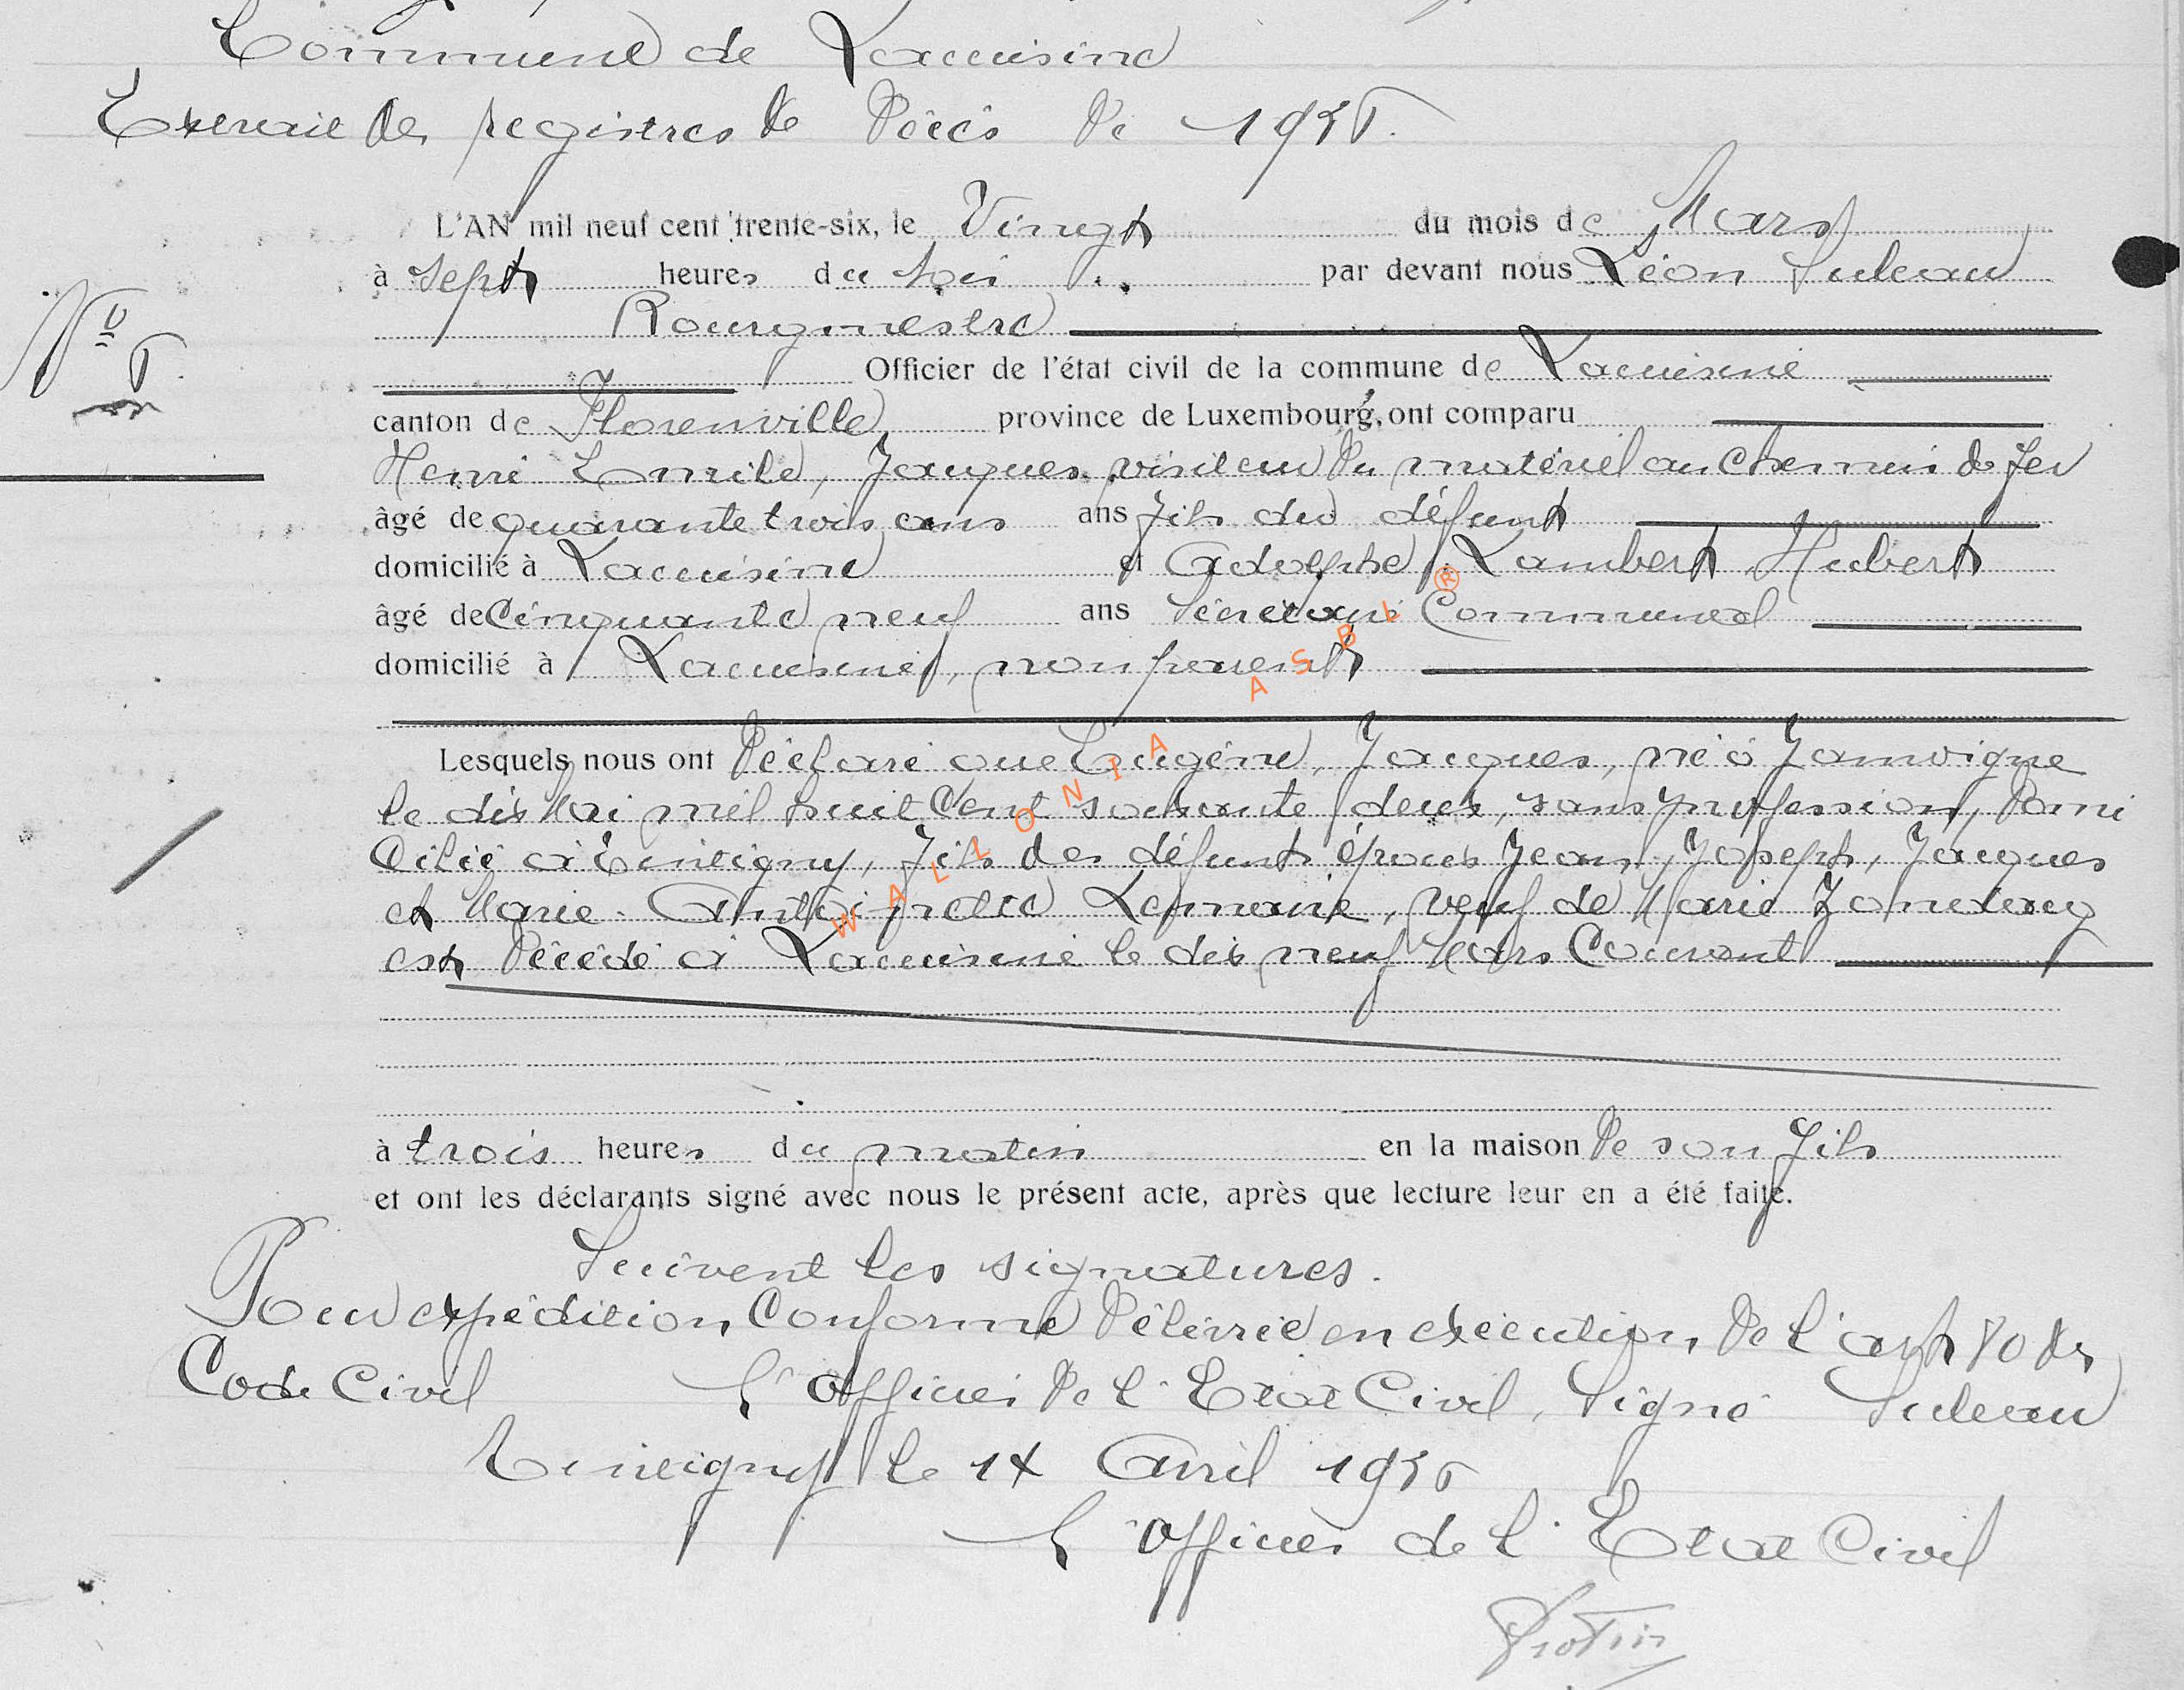 Commune de Lacuisine
Extrait des registres de Décès de 1936.
L'AN mil neuf cent trente-six, le Vingt du mois de Mars
à sept heures du soir par devant nous Léon Suleau
Bourgmestre
No 6
Officier de l'état civil de la commune de Lacuisine
canton de Florenville province de Luxembourg, ont comparu
Henri Emile, Jacques visiteur du matériel au Chemin de fer
âgé de quarante trois ans ans fils du défunt
domicilié à Lacuisine et Adolphe, Lambert Hubert
âgé de Cinquante neuf ans Secrétaire Communal
domicilié à Lacuisine, non parent
Lesquels nous ont Déclaré que Eugène, Jacques, né à Jamoigne
le dix Mai mil huit Cent soixante deux, sans profession, Domi
Cilié à Tintigny, fils des défunts époux Jean, Joseph, Jacques
et Marie. Antoinette Lemaire, veuf de Marie
est Décédé à Lacuisine le dix neuf Mars Courant
à trois heures du matin en la maison De son fils
et ont les déclarants signé avec nous le présent acte, après que lecture leur en a été faite.
Suivent les signatures.
Pour expédition Conforme Délivrée en exécution De l'art 80 du
Code Civil L'officier De l'Etat Civil, Signé Suleau
Tintigny le 14 Avril 1936
L'officier de l'Etat Civil
WALLONIA ASBL ®